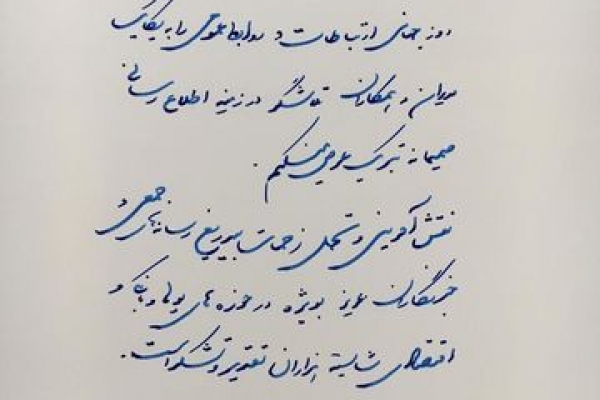 روز جهانی ارتباطات و روابط عمومی را به یکایک
مدیران و همکاران تلاشگر در زمینه اطلاع رسانی
صمیمانه تبریک عرض میکنم.
نقش آفرینی و تحمل زحمات بیدریغ رسانه‌های جمعی و
خبرنگاران عزیز بویژه در حوزه های پولی و بانکی و
اقتصادی شایسته هزاران تقدیر و تشکر است.